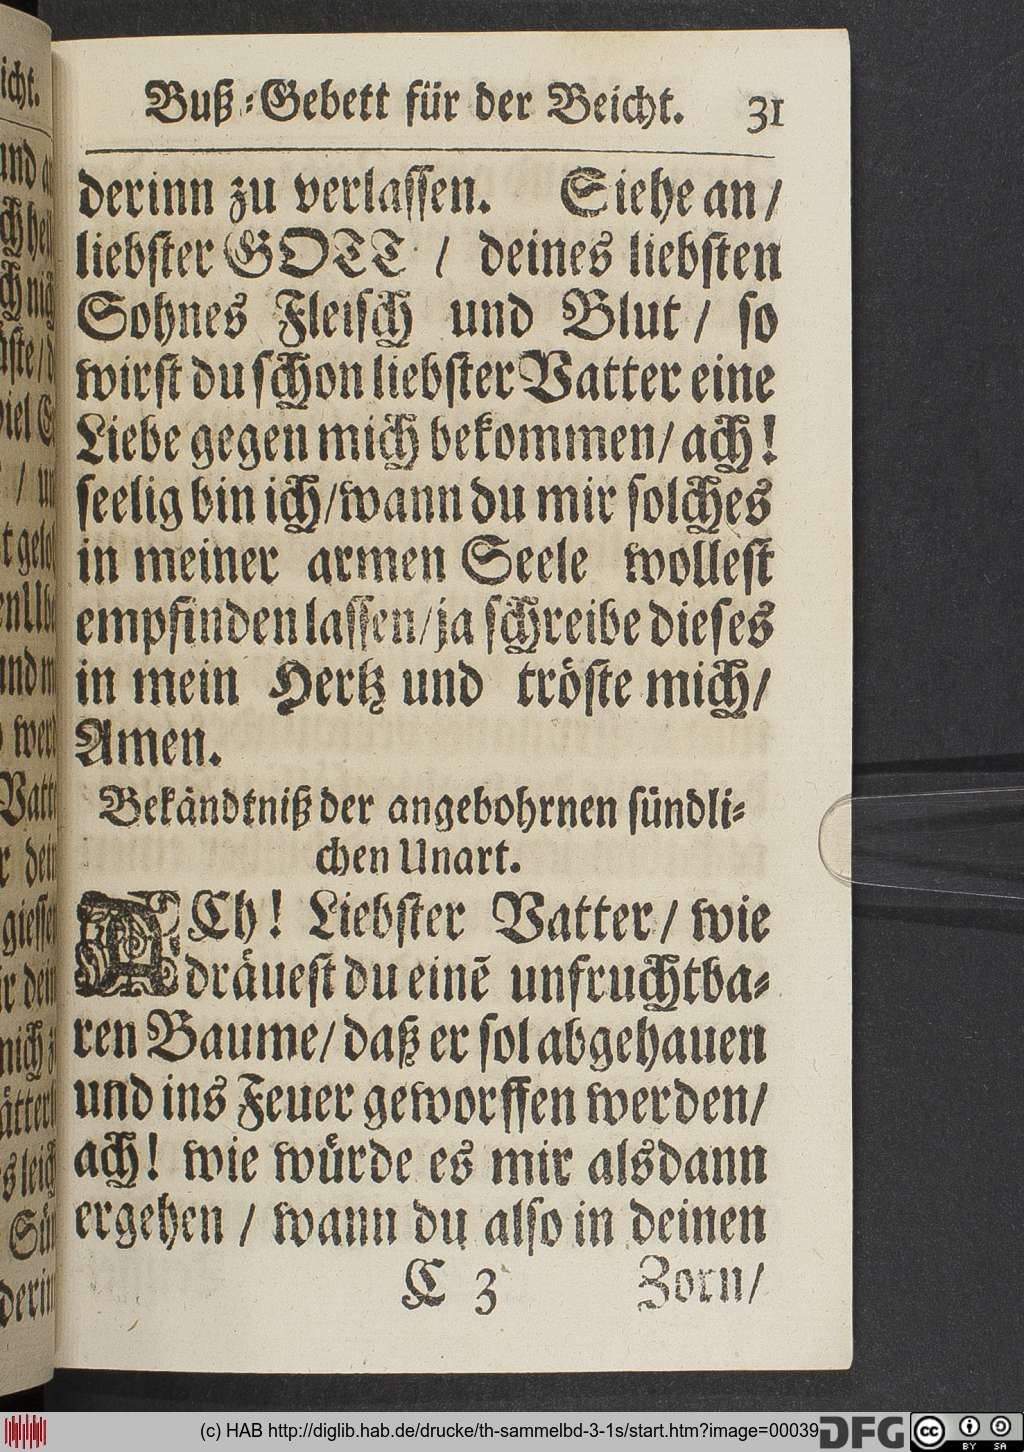 Buß-Gebett für der Beicht. 31
derinn zu verlassen. Siehe an/
liebster GOTT / deines liebsten
Sohnes Fleisch und Blut / so
wirst du schon liebster Vatter eine
Liebe gegen mich bekommen/ ach!
seelig bin ich/wann du mir solches
in meiner armen Seele wollest
empfinden lassen/ja schreibe dieses
in mein Hertz und tröste mich/
Amen.
Bekändtniß der angebohrnen sündli-
chen Unart.
ACh! Liebster Vatter/ wie
dräuest du einē unfruchtba-
ren Baume/ daß er sol abgehauen
und ins Feuer geworffen werden/
ach! wie würde es mir alsdann
ergehen / wann du also in deinen
C 3 Zorn/
(c) HAB http://diglib.hab.de/drucke/th-sammelbd-3-1s/start.htm?image=00039
DFG
cc BY SA